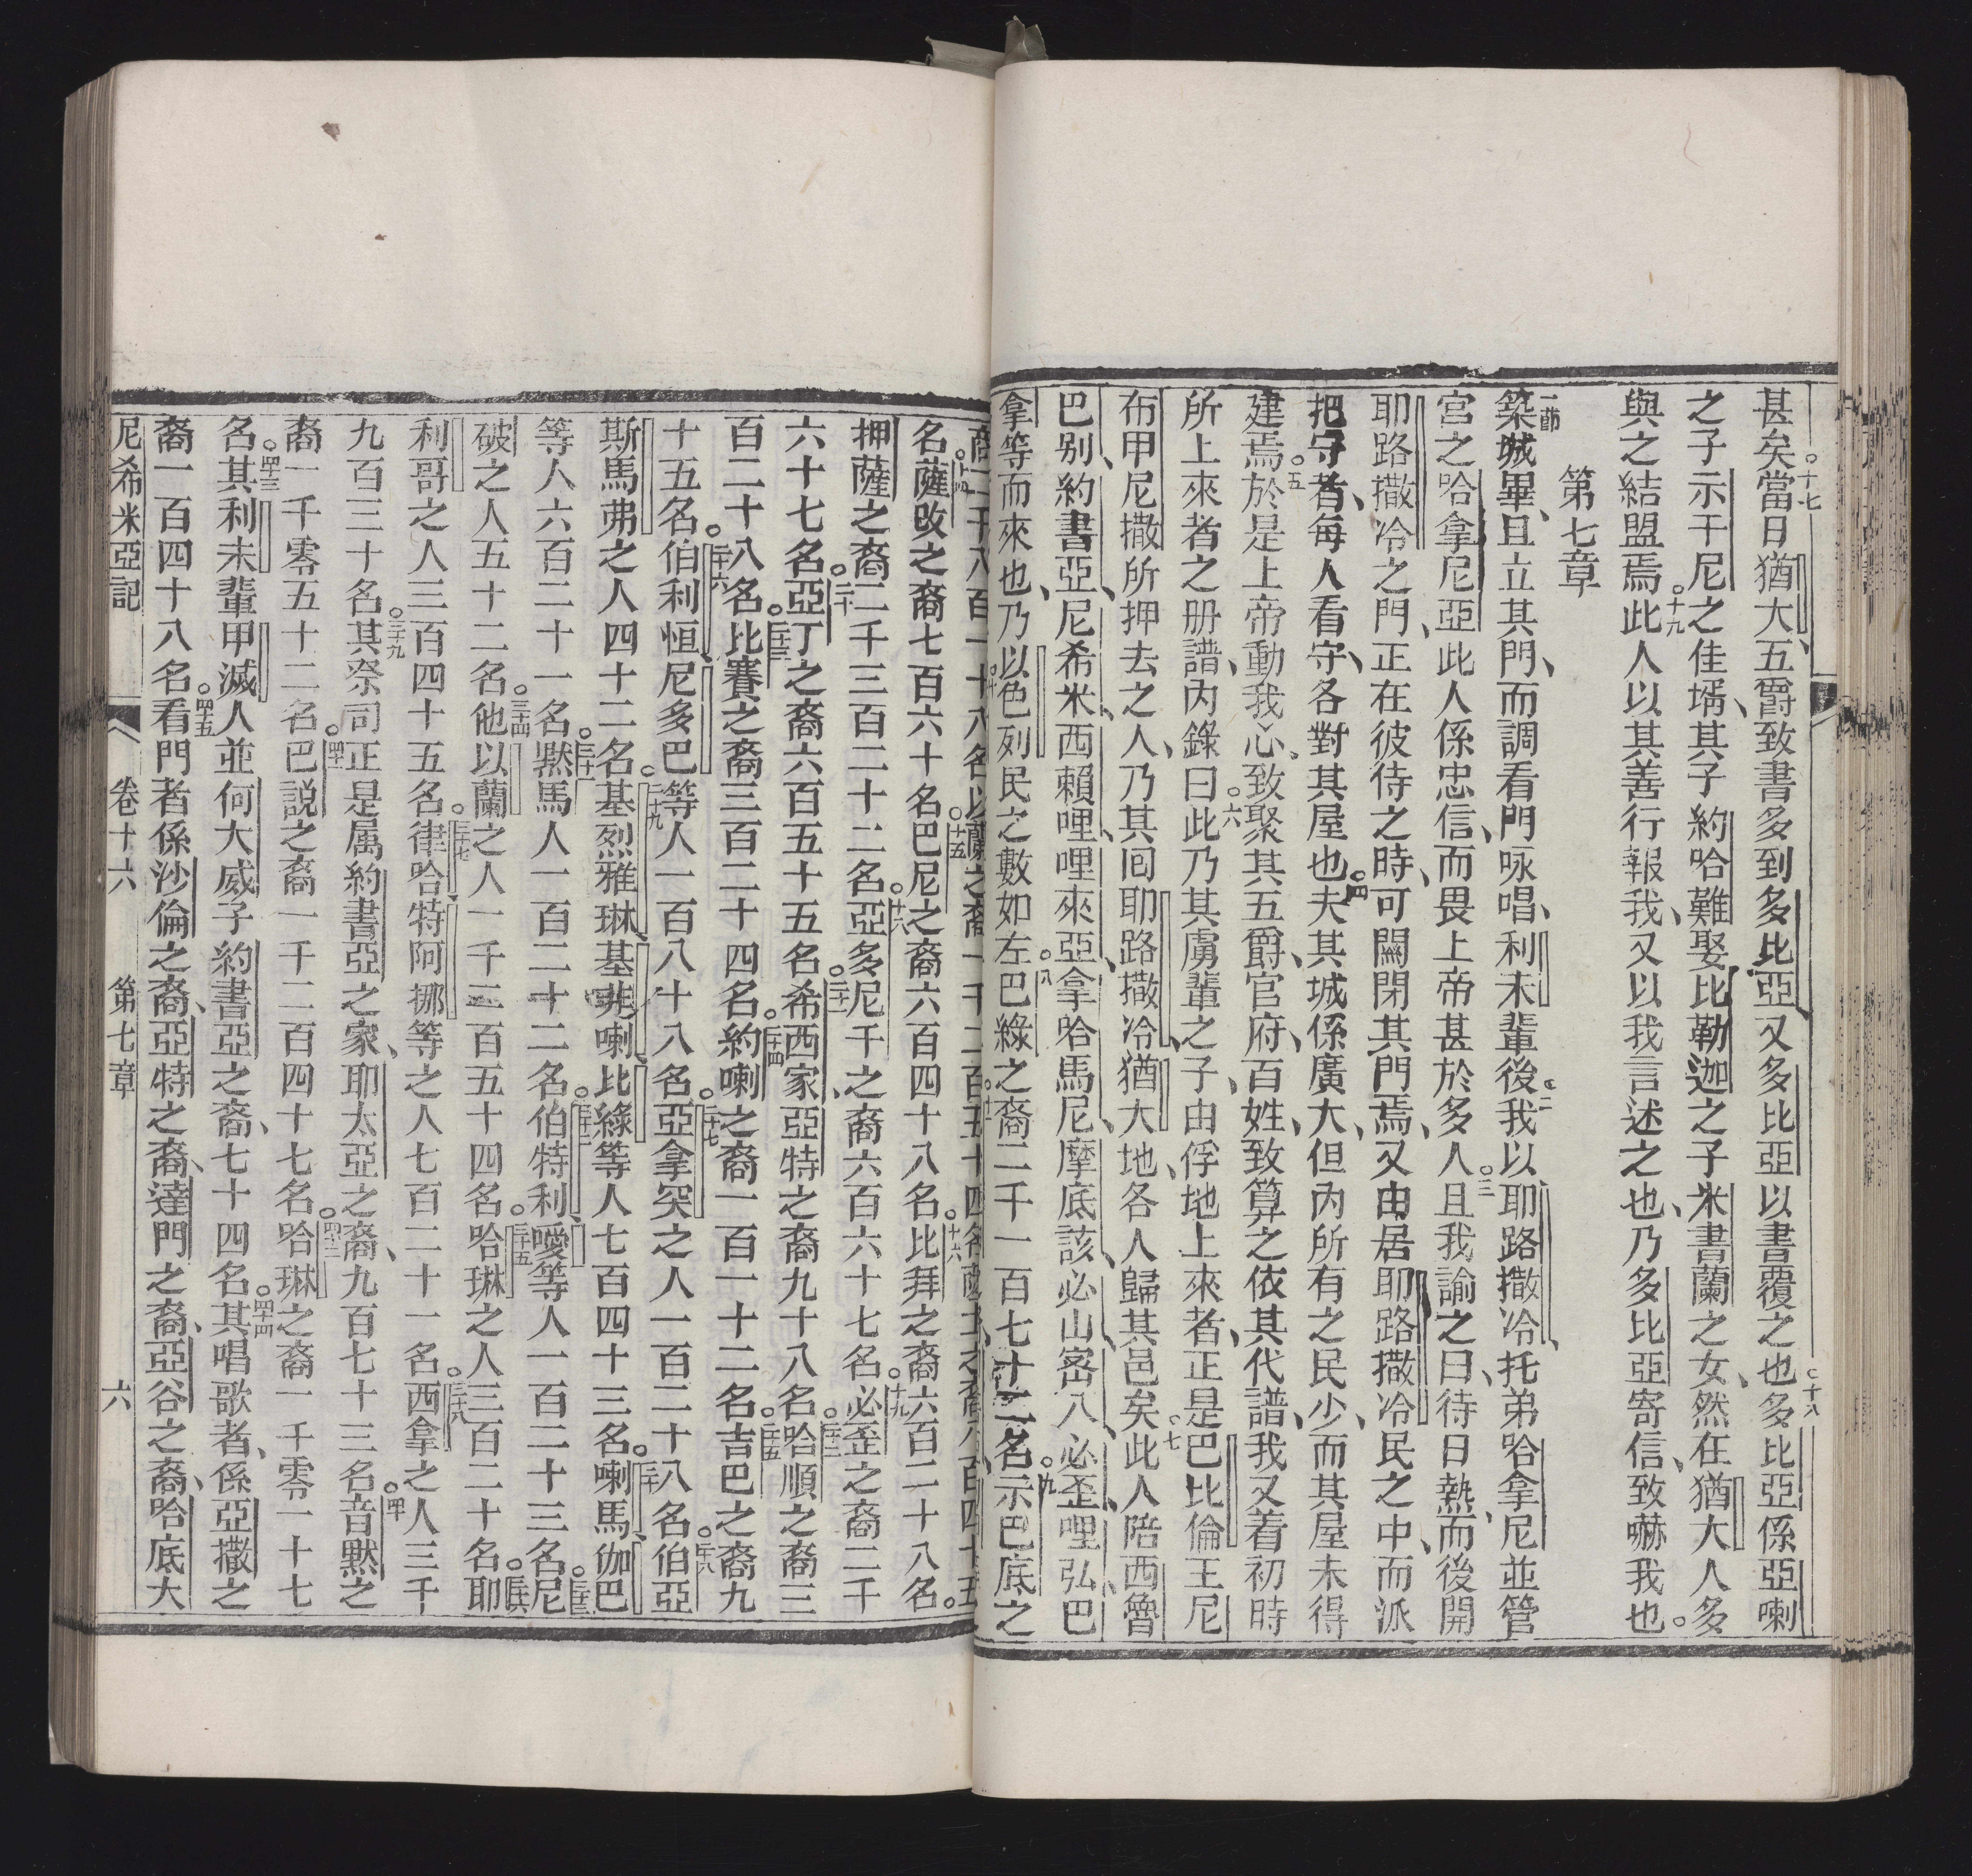 甚矣○十七當日猶大五爵致書多到多比亞、又多比亞以書覆之也○十八多比亞係亞喇
之子示干尼之佳壻、其子約哈難娶比勒迦之子米書蘭之女、然在猶大人多
與之結盟焉○十九此人以其善行報我、又以我言述之也、乃多比亞寄信、致嚇我也。
第七章
一節築城畢、且立其門、而調看門咏唱、利未輩後○二我以耶路撒冷、托弟哈拿尼並管
宮之哈拿尼亞、此人係忠信、而畏上帝甚於多人○三且我諭之曰、待日熱、而後開
耶路撒冷之門、正在彼待之時、可關閉其門焉、又由居耶路撒冷民之中、而派
把守者、每人看守、各對其屋也○四夫其城係廣大、但內所有之民少、而其屋未得
建焉○五於是上帝動我心、致聚其五爵、官府、百姓、致算之依其代譜、我又着初時
所上來者之册譜、內錄曰○六此乃其虜輩之子、由俘地上來者、正是巴比倫王尼
布甲尼撒所押去之人、乃其囘耶路撒冷、猶大地、各人歸其邑矣○七此人陪西魯
巴别、約書亞、尼希米、西賴哩、哩來亞、拿哈馬尼、摩底該、必山、密八、必歪哩、弘巴
拿等而來也、乃以色列民之數如左○八巴綠之裔二千一百七十二名○九示巴底之
名○十四薩攺之裔七百六十名○十五巴尼之裔六百四十八名○十六比拜之裔六百二十八名。
押薩之裔二千三百二十二名○十八亞多尼千之裔六百六十七名○十九必歪之裔二千
六十七名○二十亞丁之裔六百五十五名○二十一希西家、亞特之裔九十八名○二十二哈順之裔三
百二十八名○二十三比賽之裔三百二十四名○二十四約喇之裔一百一十二名○二十五吉巴之裔九
十五名○二十六伯利恒、尼多巴等人一百八十八名○二十七亞拿突之人一百二十八名○二十八伯亞
斯馬弗之人四十二名○二十九基烈雅琳、基非喇、比綠等人七百四十三名○三十喇馬、伽巴
等人六百二十一名○三十一默馬人一百二十二名○三十二伯特利、噯等人一百二十三名○三十三尼
破之人五十二名○三十四他以蘭之人一千二百五十四名○三十五哈琳之人三百二十名○三十六耶
利哥之人三百四十五名○三十七律、哈特、阿挪等之人七百二十一名○三十八西拿之人三千
九百三十名○三十九其祭司正是属約書亞之家、耶太亞之裔、九百七十三名○四十音默之
裔一千零五十二名○四十一巴説之裔一千二百四十七名○四十二哈琳之裔一千零一十七
名○四十三其利未輩、甲滅人並何大威子約書亞之裔、七十四名○四十四其唱歌者、係亞撒之
裔一百四十八名○四十五看門者係沙倫之裔、亞特之裔、達門之裔、亞谷之裔、哈底大
尼希米亞記 卷十六 第七章 六